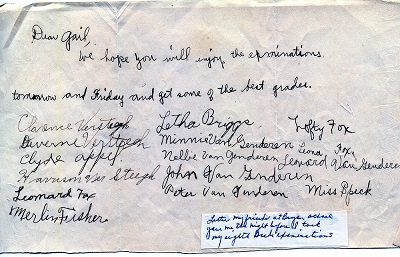 Dear Gail,
We hope you will enjoy the examinations
tomorrow and Friday and get some of the best grades.
Clarence Versteegh Letha Briggs Lofty Fox
Laverne Versteegh Minnie Van Genderen Leona Fox
Clyde Appel Nellie Van Genderen Leonard Van Genderen
Harrison Ver Steegh John Van Genderen
Leonard Fox Peter Van Genderen Miss Speck
Merlin Fisher
Letter my friends at school
gave me the night before I took
my eighth Grade examinations